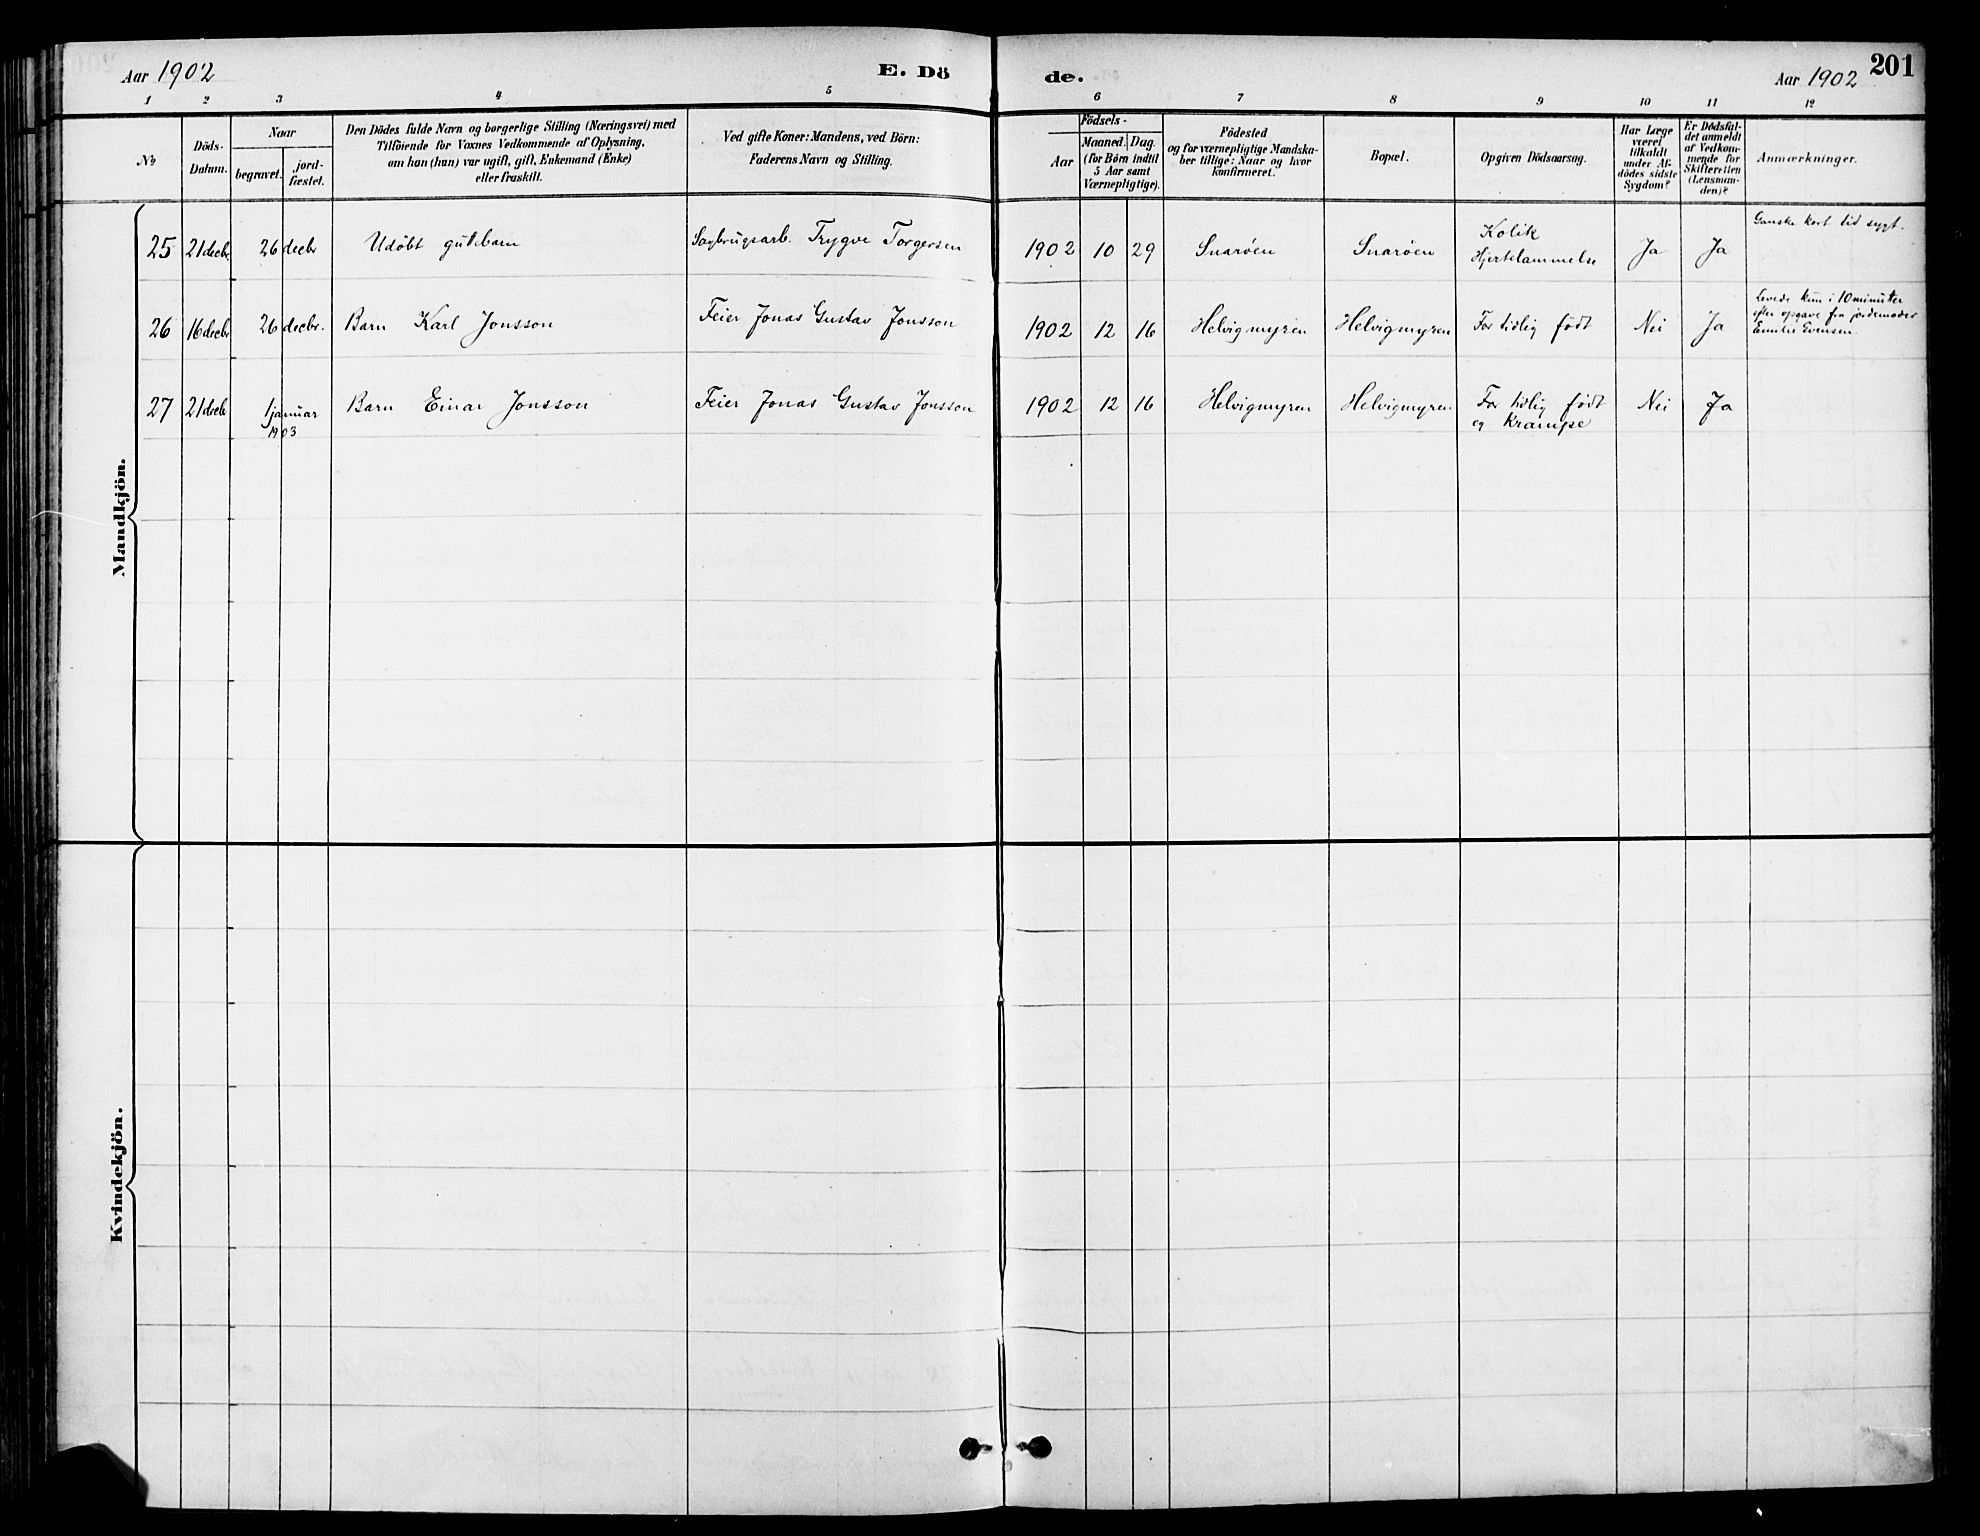 Aar 1902
E. Dö
de.
Aar 1902
201
1 2 3 4 5 6 7 8 9 10 11 12
No
Döds-
Datum.
Naar
begravet.
jord-
fæstet.
Den Dödes fulde Navn og borgerlige Stilling (Næringsvei) med
Tilföiende for Voxnes Vedkommende af Oplysning,
om han (hun) var ugift, gift, Enkemand (Enke)
eller fraskilt.
Ved gifte Koner: Mandens, ved Börn:
Faderens Navn og Stilling.
Födsels-
Aar
Maaned. Dag.
(for Börn indtil
5 Aar samt
Værnepligtige).
Födested
og for værnepligtige Mandska-
ber tillige: Naar og hvor
konfirmeret.
Bopæl.
Opgiven Dödsaarsag.
Har Læge
været
tilkaldt
under Af-
dödes sidste
Sygdom?
Er Dödsfal-
det anmeldt
af Vedkom-
mende for
Skifteretten
(Lensman-
den)?
Anmærkninger.
Mandkjön.
25 21 decbr 26 decbr Udöbt guttebarn Sagbrugsarb. Trygve Torgersen 1902 10 29 Snaröen Snaröen Kolik
Hjertelammelse Ja Ja Ganske kort tid sygt.
26 16 decbr 26 decbr. Barn Karl Jonsson Feier Jonas Gustav Jonsson 1902 12 16 Helvigmyren Helvigmyren For tidlig födt Nei Ja Levede kun i 10 minutter
efter opgave fra jordemoder
Emilie Evensen.
27 21 decbr 1 januar
1903 Barn Einar Jonsson Feier Jonas Gustav Jonsson 1902 12 16 Helvigmyren Helvigmyren For tidlig födt
og Krampe Nei Ja
Kvindekjön.